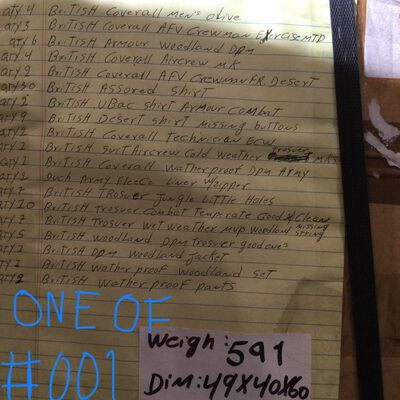 QTY 4 BRITISH Coverall men's olive
QTY 3 BRITISH Coverall AFV Crewman ExerciseMTP
QTY 6 BRITISH Armour Woodland DPM
QTY 4 BRITISH Coverall Aircrew MK
QTY 9 BRITISH Coverall AFV Crewman FR. Desert
QTY 30 BRITISH ASSored Shirt
QTY 2 BRITISH UBac shirt Armour Combat
QTY 9 BRITISH Desert shirt missing buttons
QTY 2 BRITISH Coverall Technician ECW
QTY 2 BRITISH Suit Aircrew Cold weather Trouser MK3
QTY 2 BRITISH Coverall weatherproof DPM Army
QTY 2 Duch Army Fleece Liner w/zipper
QTY 7 BRITISH TRouser Jungle Little Holes
QTY 20 BRITISH trouser Combat Temperate Good & Clean
QTY 7 BRITISH Trouser wet weather MVP woodland missing string
QTY 5 BRITISH Woodland DPM trouser good one's
QTY 2 BRITISH DPM Woodland Jacket
QTY 2 BRITISH water proof woodland set
QTY 2 BRITISH water proof pants
ONE OF
#001
Weigh: 591
Dim: 49X40X60